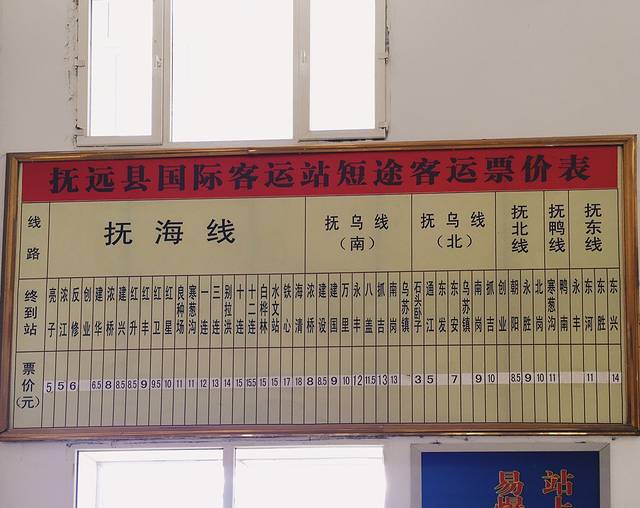 抚远县国际客运站短途客运票价表
线路 抚海线 抚乌线(南) 抚乌线(北) 抚北线 抚鸭线 抚东线
终到站 亮子 浓江 反修 创业 建华 浓桥 建兴 红升 红丰 红卫 红星 良种场 寒葱沟 一连 三连 别拉洪 十连 十二连 白桦林 水文站 铁心 海清 浓桥 建设 建国 万里 永丰 八盖 抓吉 南岗 乌苏镇 石头卧子 通江 东发 东安 乌苏镇 南岗 抓吉 创业 朝阳 永胜 北岗 寒葱沟 鸭南 永丰 东河 东胜 东兴
票价(元) 5 5 6 6.5 8 8.5 8.5 9 9.5 10 11 11 12 13 14 15 15.5 15 15 17 18 8 8.5 9 10 12 11.5 13 13 3 5 7 9 10 8.5 9 10 11 11 14
易 站